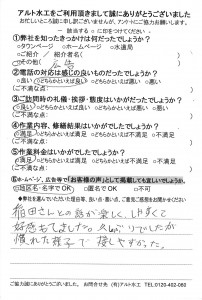 アルト水工をご利用頂きまして誠にありがとうございました
お忙しいところ誠に申し訳ございませんが、アンケートにご協力お願いします。
- 該当する ○ に印をつけてください -
①弊社を知ったきっかけは何だったでしょうか?
○タウンページ ○ホームページ ○水道局
○ご紹介 / 紹介者名( )
その他( 広告 )
②電話の対応は感じの良いものだったでしょうか?
○良い ○どちらかといえば良い ○どちらかといえば悪い ○悪い
(ご不満な点: )
③ご訪問時の礼儀・挨拶・態度はいかがだったでしょうか?
○良い ○どちらかといえば良い ○どちらかといえば悪い ○悪い
(ご不満な点: )
④作業内容、修繕結果はいかがでしたでしょうか?
○満足 ○どちらかといえば満足 ○どちらかといえば不満足 ○不満足
(こちら )
⑤作業料金はいかがでしたでしょうか?
○満足 ○どちらかといえば満足 ○どちらかといえば不満足 ○不満足
(ご不満な点: )
⑥ホームページ、広告等で「お客様の声」として掲載しても宜しいでしょうか。
○地区名・名字でOK ○匿名でOK ○不可
◆弊社を選んでいただいた理由等、良い点・悪い点、ご意見ご感想をお聞かせください
稲田さんとの話が楽しく
好感もてました。
慣れた様子で 接しやすかった。
ご協力誠にありがとうございました。 お問合せ先 (有)アルト水工 TEL.0120-492-060